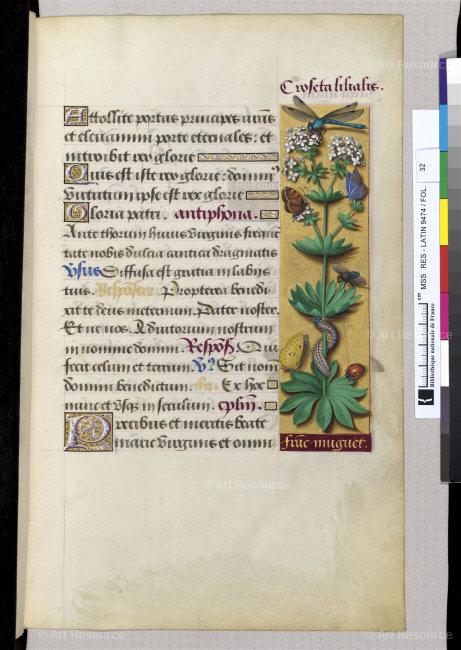 Croseta lilialis.
Attollite portas principes vr̃as
et eleuamini porte eternales: et
introibit rex glorie
Quis est iste rex glorie: domin9
virtutum ipse est rex glorie
Gloria patri. antiphona.
Ante thorum huius virginis freque
tate nobis dulcia cantica dragmatis
Vsus Diffusa est gratia in labiis
tuis. Propterea benedi
xit te deus in eternum. Pater noster.
Et ne nos. Adiutorium nostrum
in nomine domini. Qui
fecit celum et terram. Sit nomen
domini benedictum. Ex hoc
nunc et vsq3 in seculum.
Precibus et meritis beate
marie virginis et omni
muguet.
MSS RES - LATIN 9474 / FOL 32
Bibliothèque nationale de France
cm
© Art Resource
© Art Resource
© Art Resource
© Art Resource
© Art Resource